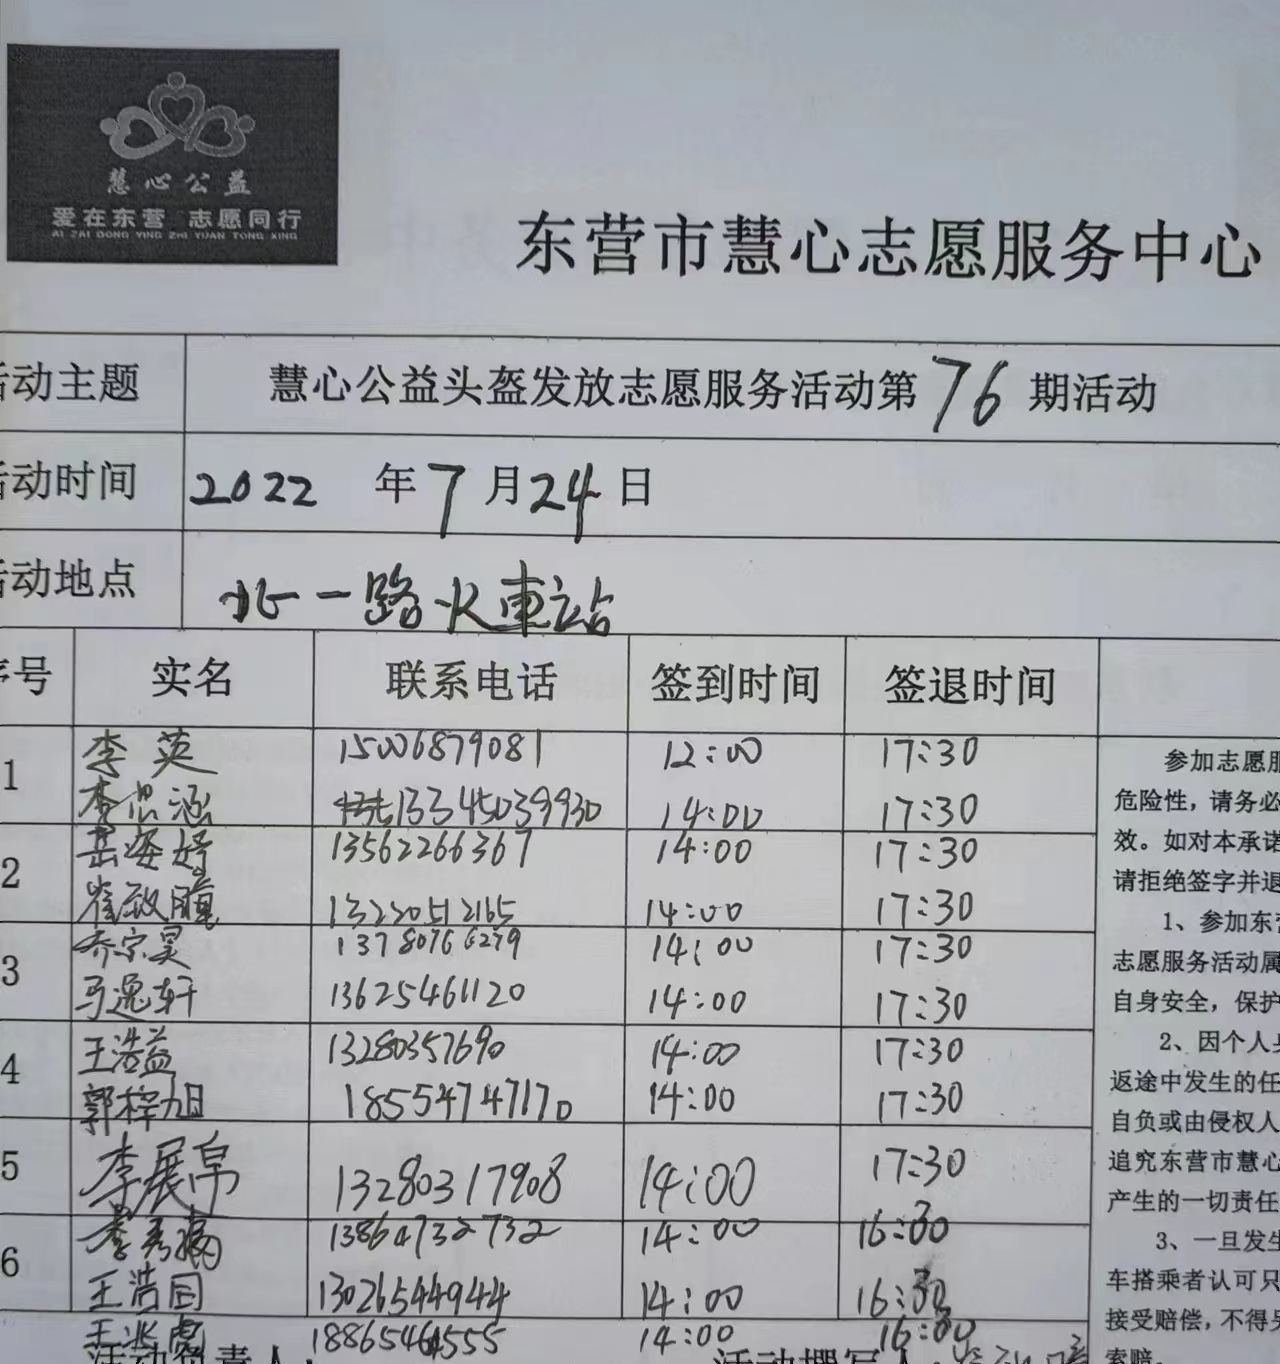 慧心公益
爱在东营 志愿同行
AI ZAI DONG YING ZHI YUAN TONG XING
东营市慧心志愿服务中心
活动主题 慧心公益头盔发放志愿服务活动第76期活动
活动时间 2022 年 7 月 24 日
活动地点 北一路火車站
序号 实名 联系电话 签到时间 签退时间
1 李英 15006879081 12:00 17:30
李思涵 13345039930 14:00 17:30
2 岳姿婷 13562266367 14:00 17:30
崔致 13220512165 14:00 17:30
3 乔宗昊 13780766279 14:00 17:30
马逸轩 13625461120 14:00 17:30
4 王浩益 13280357690 14:00 17:30
郭梓旭 18554747170 14:00 17:30
5 李展帛 13280317908 14:00 17:30
6 李秀 13864732732 14:00 16:30
王浩国 13026544944 14:00 16:30
王兆虎 14:00
活动负责人: 活动撰写人:
参加志愿服
危险性，请务必
效。如对本承诺
请拒绝签字并退
1、参加东营
志愿服务活动属
自身安全，保护
2、因个人身
返途中发生的任
自负或由侵权人
追究东营市慧心
产生的一切责任
3、一旦发生
车搭乘者认可只
接受赔偿，不得另
索赔